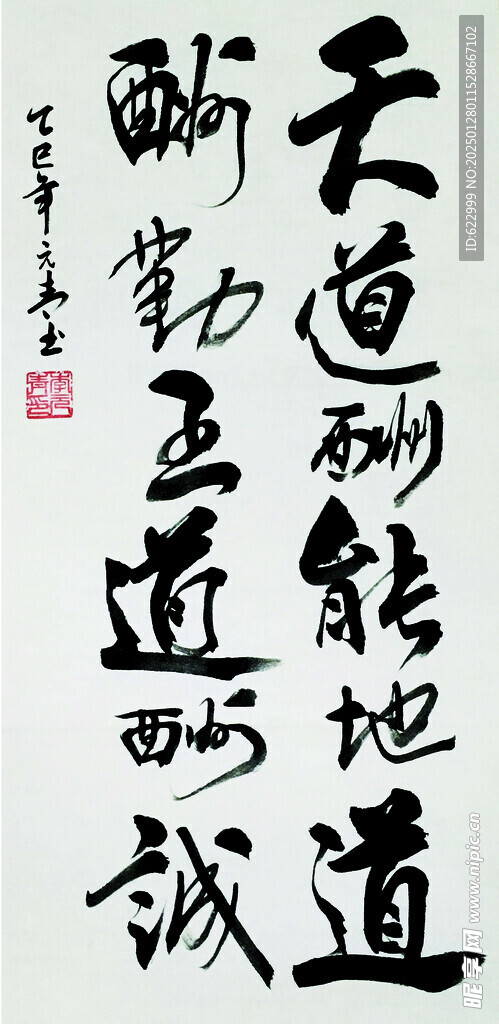 天道酬能地道
酬勤王道酬誠
乙巳年元青书
李元青印
ID:622999 NO:20250128011528667102
昵享网 www.nipic.cn